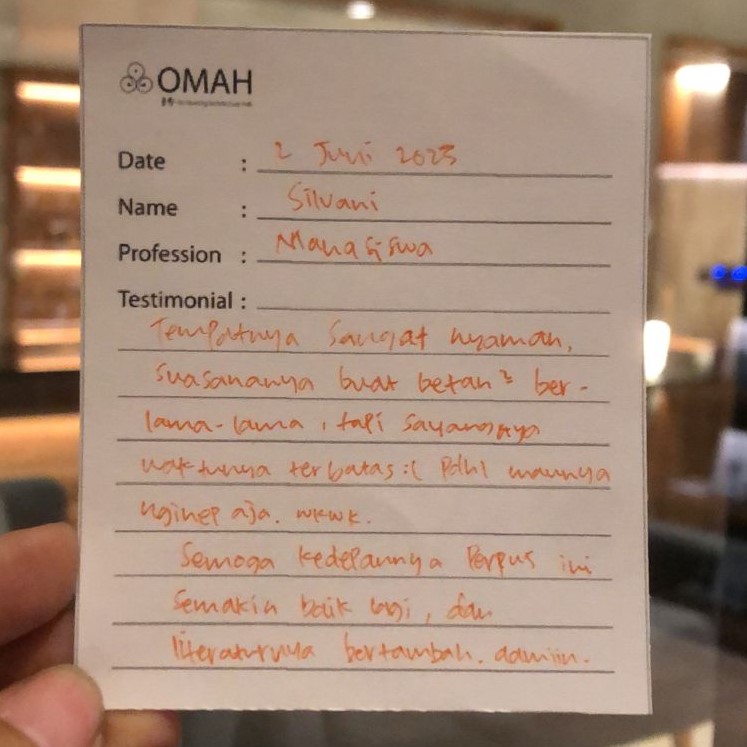 OMAH
Date : 2 Juni 2023
Name : Silvani
Profession : Mahasiswa
Testimonial :
Tempatnya sangat nyaman,
suasananya buat betah² ber-
lama-lama, tapi sayangnya
waktunya terbatas :( Pdhl maunya
nginep aja. wkwk.
Semoga kedepannya Perpus ini
semakin baik lagi, dan
literaturnya bertambah. aamiin.